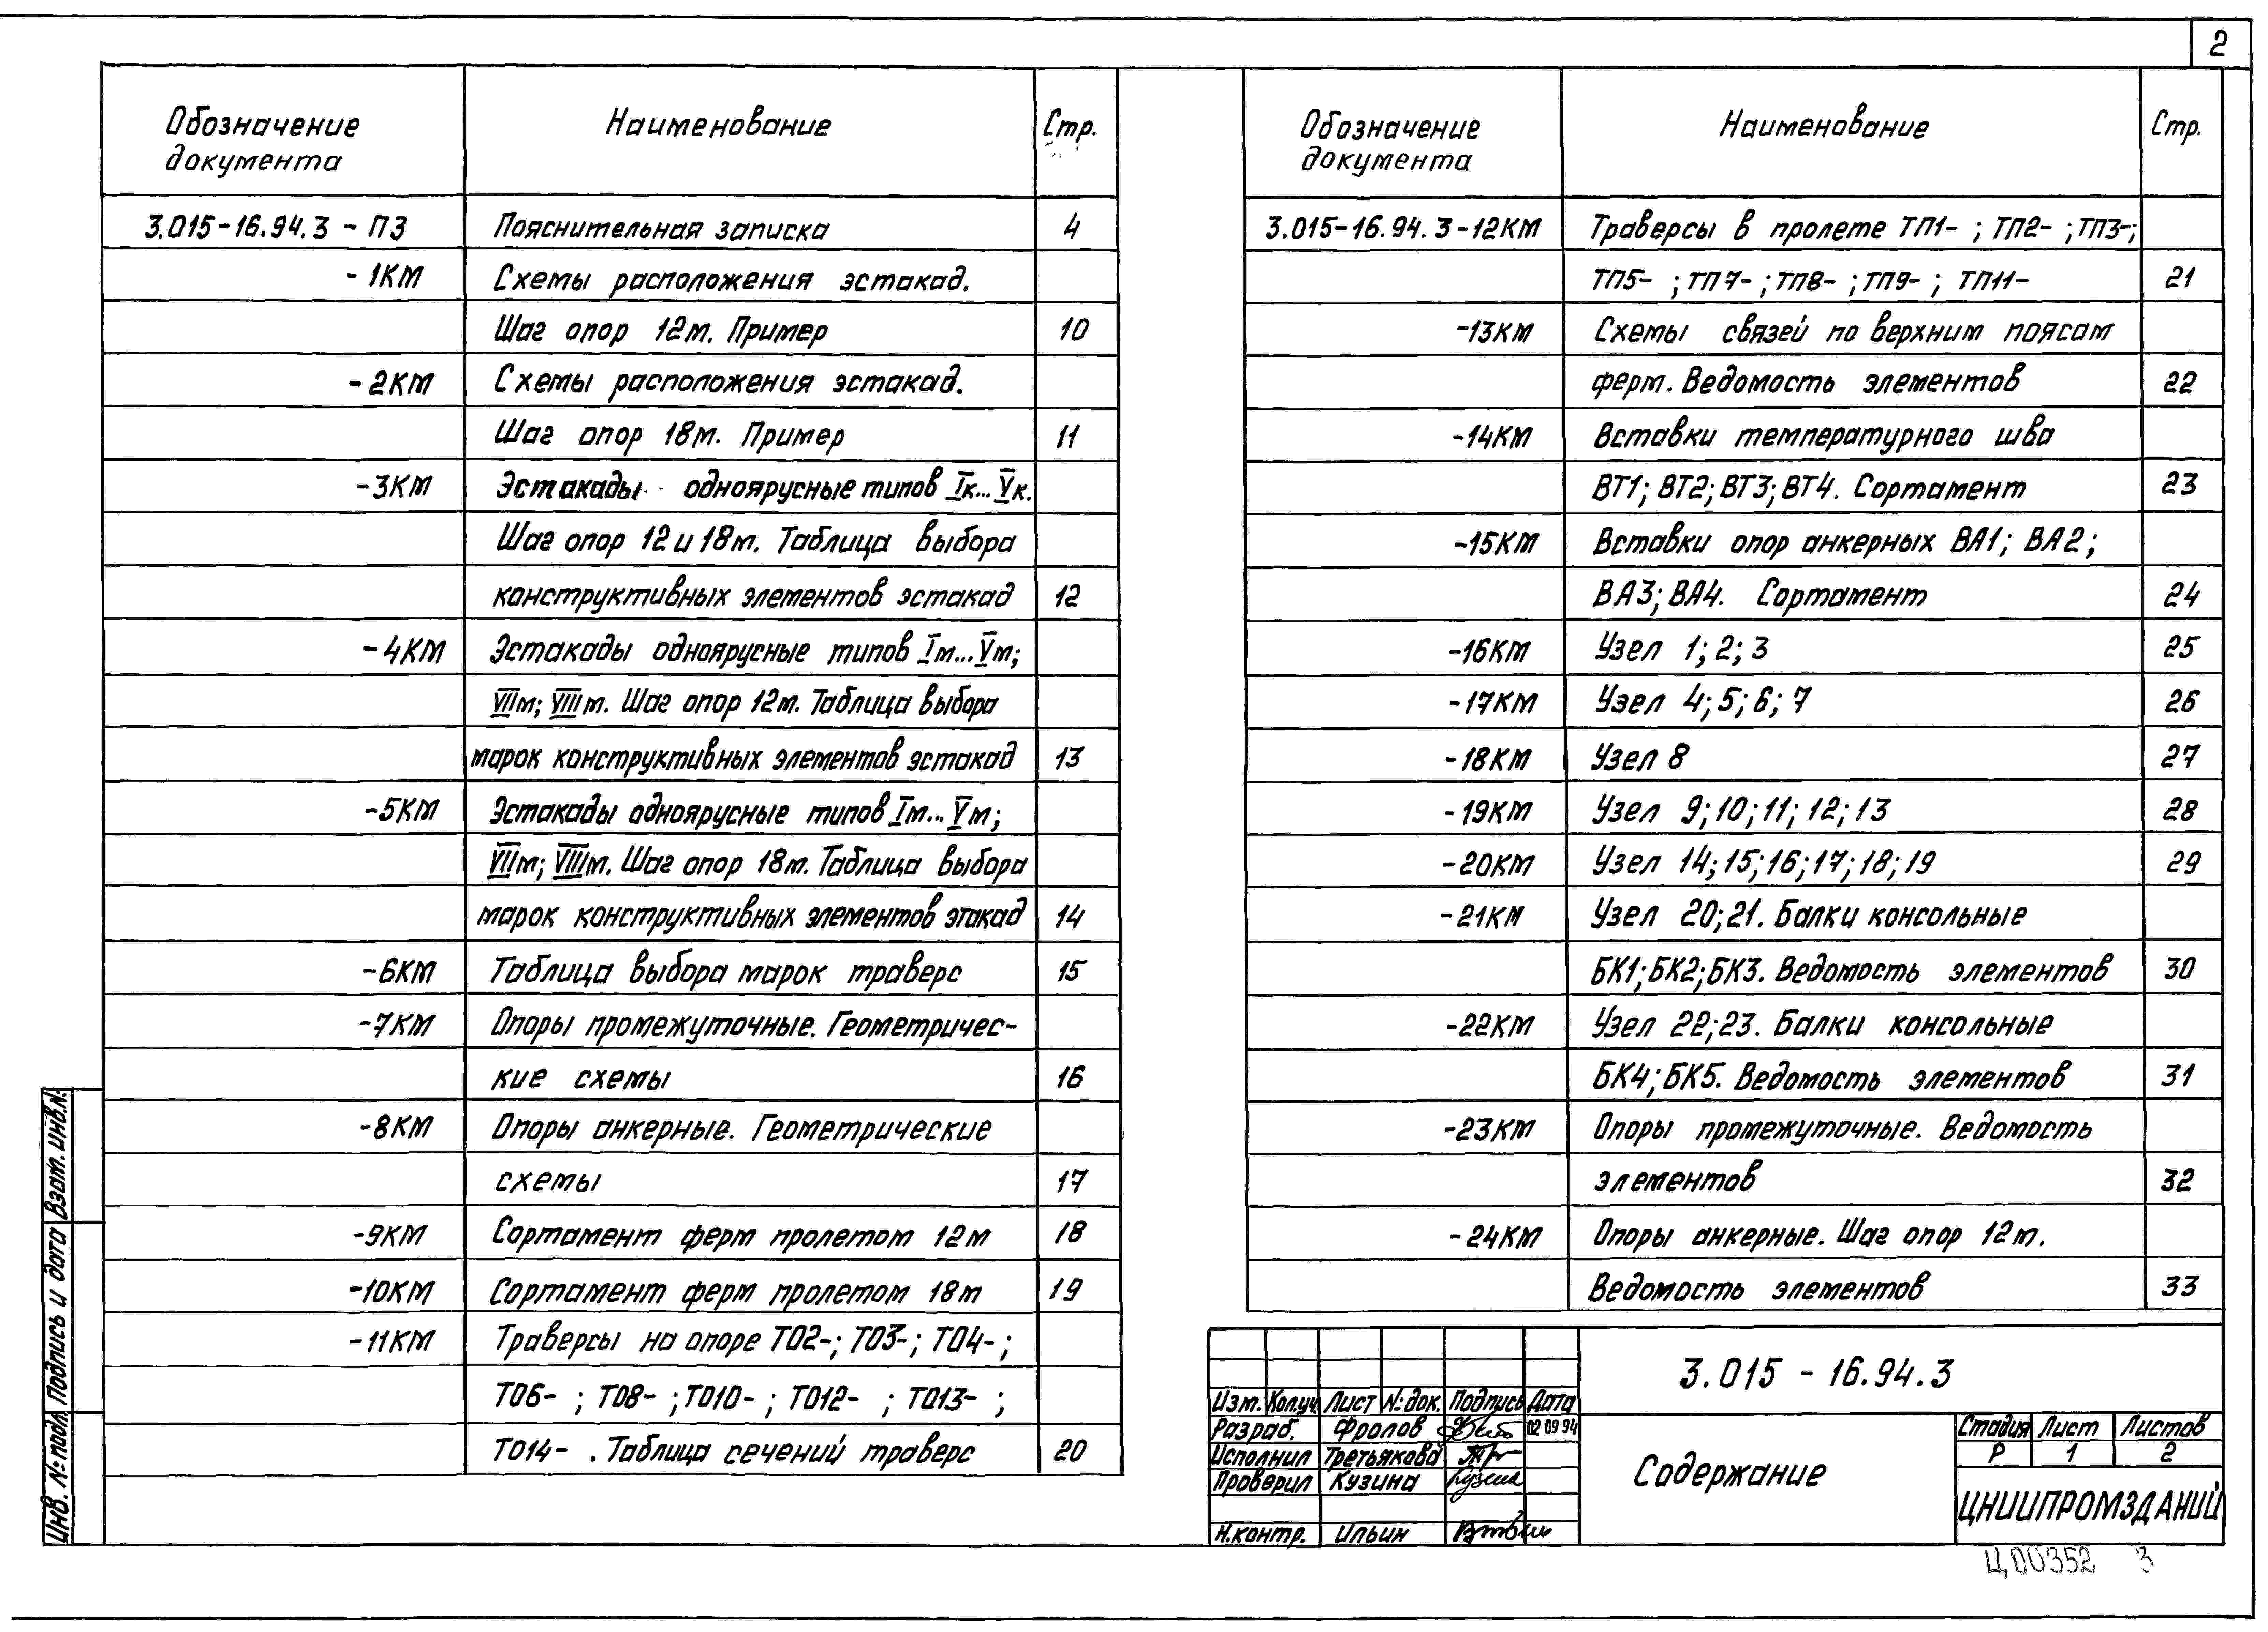 2
Обозначение документа Наименование Стр.
3.015-16.94.3 - ПЗ Пояснительная записка 4
- 1КМ Схемы расположения эстакад.
Шаг опор 12м. Пример 10
- 2КМ Схемы расположения эстакад.
Шаг опор 18м. Пример 11
-3КМ Эстакады одноярусные типов Iк...Vк.
Шаг опор 12 и 18м. Таблица выбора
конструктивных элементов эстакад 12
-4КМ Эстакады одноярусные типов Iм...Vм;
VIIм; VIIIм. Шаг опор 12м. Таблица выбора
марок конструктивных элементов эстакад 13
-5КМ Эстакады одноярусные типов Iм...Vм;
VIIм; VIIIм. Шаг опор 18м. Таблица выбора
марок конструктивных элементов этакад 14
-6КМ Таблица выбора марок траверс 15
-7КМ Опоры промежуточные. Геометричес-
кие схемы 16
-8КМ Опоры анкерные. Геометрические
схемы 17
-9КМ Сортамент ферм пролетом 12м 18
-10КМ Сортамент ферм пролетом 18м 19
-11КМ Траверсы на опоре ТО2-; ТО3-; ТО4-;
ТО6- ; ТО8- ; ТО10- ; ТО12- ; ТО13- ;
ТО14- . Таблица сечений траверс 20
Обозначение документа Наименование Стр.
3.015-16.94.3-12КМ Траверсы в пролете ТП1- ; ТП2- ; ТП3-;
ТП5- ; ТП7- ; ТП8- ; ТП9- ; ТП11- 21
-13КМ Схемы связей по верхним поясам
ферм. Ведомость элементов 22
-14КМ Вставки температурного шва
ВТ1; ВТ2; ВТ3; ВТ4. Сортамент 23
-15КМ Вставки опор анкерных ВА1; ВА2;
ВА3; ВА4. Сортамент 24
-16КМ Узел 1; 2; 3 25
-17КМ Узел 4; 5; 6; 7 26
-18КМ Узел 8 27
-19КМ Узел 9; 10; 11; 12; 13 28
-20КМ Узел 14; 15; 16; 17; 18; 19 29
-21КМ Узел 20; 21. Балки консольные
БК1; БК2; БК3. Ведомость элементов 30
-22КМ Узел 22; 23. Балки консольные
БК4; БК5. Ведомость элементов 31
-23КМ Опоры промежуточные. Ведомость
элементов 32
-24КМ Опоры анкерные. Шаг опор 12м.
Ведомость элементов 33
3.015 - 16.94.3
Изм. Кол.уч. Лист №док. Подпись Дата
Разраб. Фролов 02 09 94
Исполнил Третьякова
Проверил Кузина Кузина
Н.контр. Ильин
Содержание
Стадия Лист Листов
Р 1 2
ЦНИИПРОМЗДАНИЙ
Ц00352 3
Инв. № подл. Подпись и дата Взам. инв.№